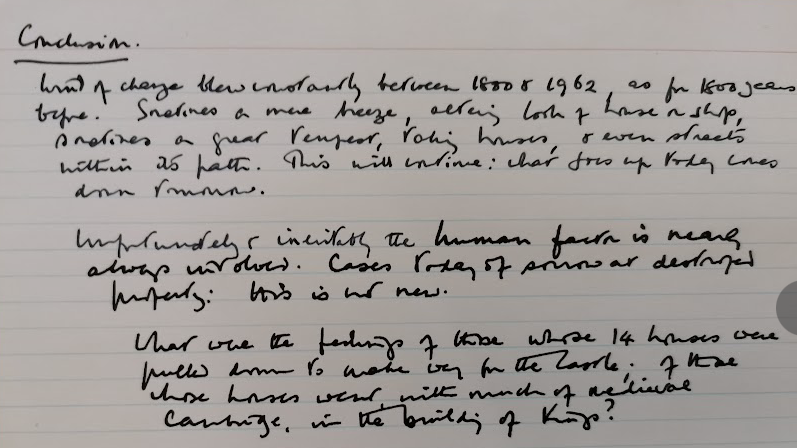 Conclusion.
Wind of change blew constantly between 1800 & 1962, as for 1800 years
before. Sometimes a mere breeze, altering look of house or shop,
sometimes a great tempest, taking houses, & even streets
within its path. This will continue: what goes up today comes
down tomorrow.
Unfortunately & inevitably the human factor is nearly
always involved. Cases today of sorrow at destroyed
property: this is not new.
What were the feelings of those whose 14 houses were
pulled down to make way for the Castle; of those
whose houses went, with much of medieval
Cambridge, in the building of Kings?